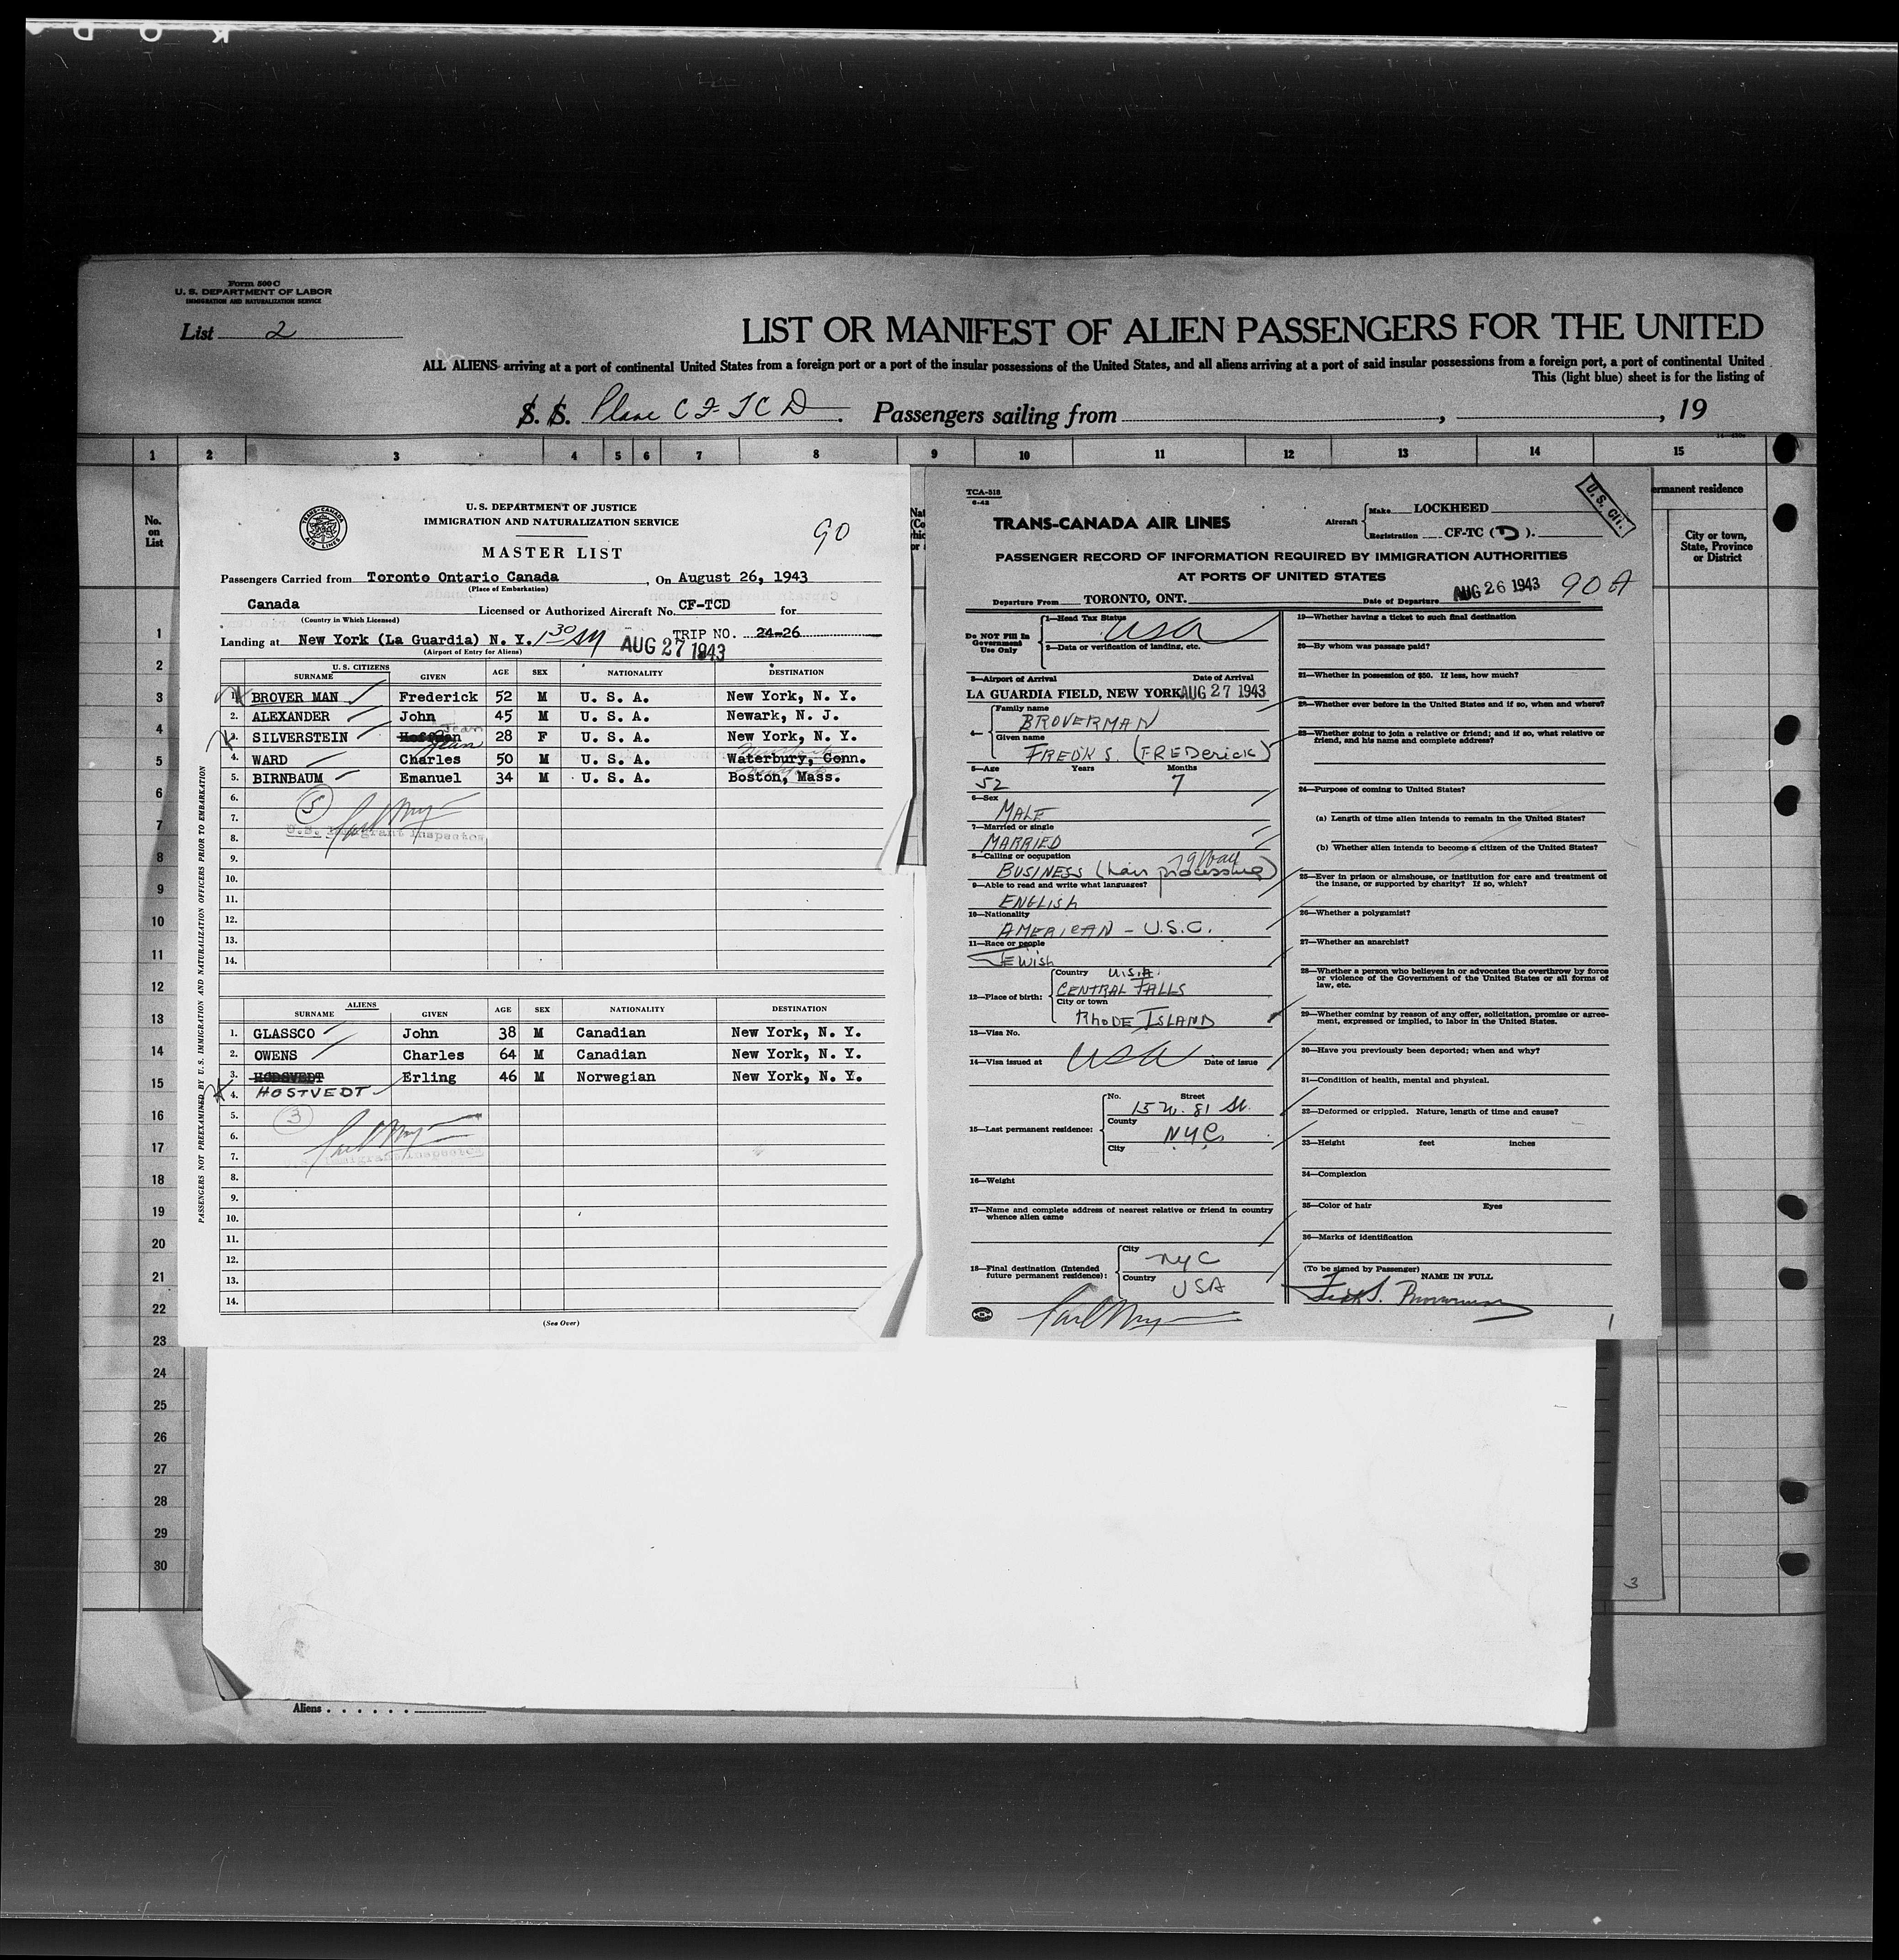 Form 500 C
U. S. DEPARTMENT OF LABOR
IMMIGRATION AND NATURALIZATION SERVICE
List 2
LIST OR MANIFEST OF ALIEN PASSENGERS FOR THE UNITED
ALL ALIENS arriving at a port of continental United States from a foreign port or a port of the insular possessions of the United States, and all aliens arriving at a port of said insular possessions from a foreign port, a port of continental United
This (light blue) sheet is for the listing of
S. S. Plane CF-TCD Passengers sailing from , , 19
1 2 3 4 5 6 7 8 9 10 11 12 13 14 15
No. on List
ermanent residence
City or town, State, Province or District
1
2
3
4
5
6
7
8
9
10
11
12
13
14
15
16
17
18
19
20
21
22
23
24
25
26
27
28
29
30
Aliens
3
TRANS-CANADA AIR LINES
U. S. DEPARTMENT OF JUSTICE
IMMIGRATION AND NATURALIZATION SERVICE
90
MASTER LIST
Passengers Carried from Toronto Ontario Canada, On August 26, 1943
(Place of Embarkation)
Canada Licensed or Authorized Aircraft No. CF-TCD for
(Country in Which Licensed)
Landing at New York (La Guardia) N. Y. 1 30 AM AUG 27 1943 TRIP NO. 24-26
(Airport of Entry for Aliens)
U. S. CITIZENS
SURNAME GIVEN AGE SEX NATIONALITY DESTINATION
1. BROVER MAN Frederick 52 M U. S. A. New York, N. Y.
2. ALEXANDER John 45 M U. S. A. Newark, N. J.
3. SILVERSTEIN Jean 28 F U. S. A. New York, N. Y.
Jean
4. WARD Charles 50 M U. S. A. Waterbury, Conn. New York
5. BIRNBAUM Emanuel 34 M U. S. A. Boston, Mass. New York
6.
5
7.
U.S. Immigrant Inspector
8.
9.
10.
11.
12.
13.
14.
ALIENS
SURNAME GIVEN AGE SEX NATIONALITY DESTINATION
1. GLASSCO John 38 M Canadian New York, N. Y.
2. OWENS Charles 64 M Canadian New York, N. Y.
3. HODSVEDT Erling 46 M Norwegian New York, N. Y.
4. HOSTVEDT
5.
3
6.
7.
Immigrant Inspector
8.
9.
10.
11.
12.
13.
14.
(See Over)
PASSENGERS NOT PREEXAMINED BY U. S. IMMIGRATION AND NATURALIZATION OFFICERS PRIOR TO EMBARKATION
TCA-518
6-42
TRANS-CANADA AIR LINES
Aircraft Make LOCKHEED
Registration CF-TC (D).
U. S. Cit.
PASSENGER RECORD OF INFORMATION REQUIRED BY IMMIGRATION AUTHORITIES
AT PORTS OF UNITED STATES
Departure From TORONTO, ONT. Date of Departure AUG 26 1943 90 A
Do NOT Fill In Government Use Only
1—Head Tax Status USA
2—Data or verification of landing, etc.
3—Airport of Arrival Date of Arrival
LA GUARDIA FIELD, NEW YORK AUG 27 1943
4— Family name
BROVERMAN
Given name
FREDK S. (FREDerick)
5—Age Years Months
52 7
6—Sex
MALE
7—Married or single
MARRIED
8—Calling or occupation
BUSINESS (hair processing)
9—Able to read and write what languages?
ENGLISH
10—Nationality
AMERICAN - U.S.C.
11—Race or people
JEWISH
12—Place of birth: Country U.S.A.
CENTRAL FALLS
City or town
RHODE ISLAND
13—Visa No.
14—Visa issued at USA Date of issue
15—Last permanent residence: No. Street
15 W. 81 St.
County
NYC
City
16—Weight
17—Name and complete address of nearest relative or friend in country whence alien came
18—Final destination (Intended future permanent residence): City
NYC
Country
USA
19—Whether having a ticket to such final destination
20—By whom was passage paid?
21—Whether in possession of $50. If less, how much?
22—Whether ever before in the United States and if so, when and where?
23—Whether going to join a relative or friend; and if so, what relative or friend, and his name and complete address?
24—Purpose of coming to United States?
(a) Length of time alien intends to remain in the United States?
(b) Whether alien intends to become a citizen of the United States?
25—Ever in prison or almshouse, or institution for care and treatment of the insane, or supported by charity? If so, which?
26—Whether a polygamist?
27—Whether an anarchist?
28—Whether a person who believes in or advocates the overthrow by force or violence of the Government of the United States or all forms of law, etc.
29—Whether coming by reason of any offer, solicitation, promise or agreement, expressed or implied, to labor in the United States.
30—Have you previously been deported; when and why?
31—Condition of health, mental and physical.
32—Deformed or crippled. Nature, length of time and cause?
33—Height feet inches
34—Complexion
35—Color of hair Eyes
36—Marks of identification
(To be signed by Passenger)
NAME IN FULL
Fredk S. Broverman
1